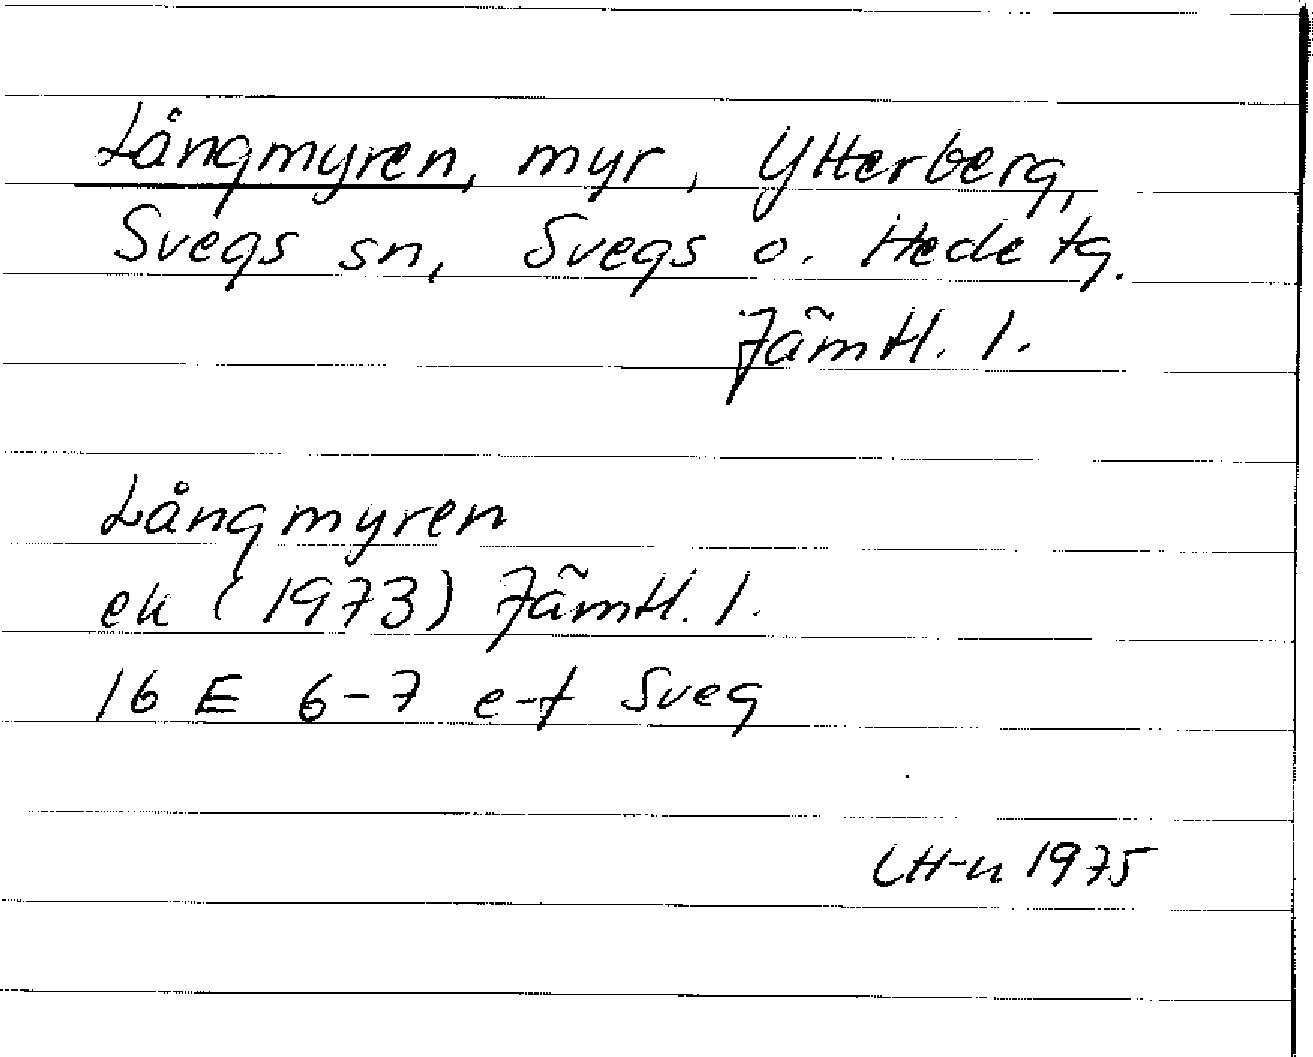 Långmyren, myr, Ytterberg,
Svegs sn, Svegs o. Hede tg.
Jämtl. l.
Långmyren
ek (1973) Jämtl. l.
16 E 6-7 e-f Sveg
LH-n 1975